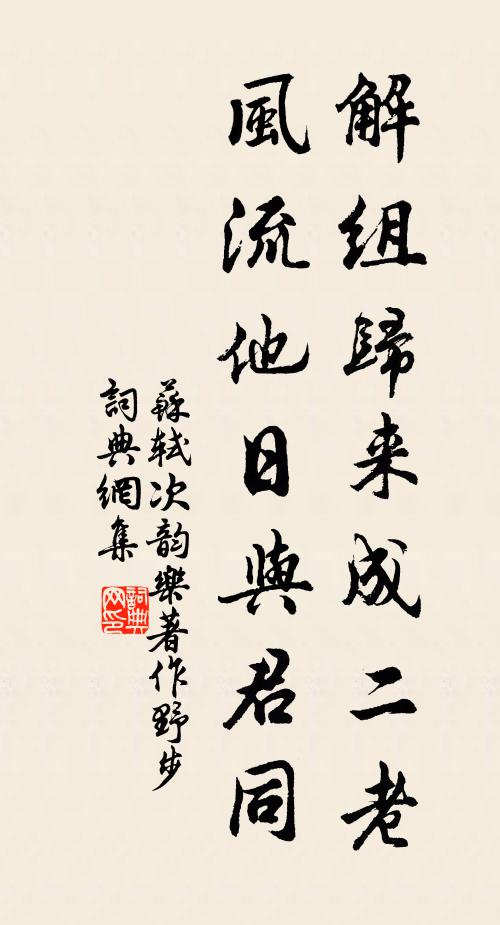 解組歸来成二老
風流他日與君同
蘇軾次韵樂著作野步
詞典網集
詞典
网印